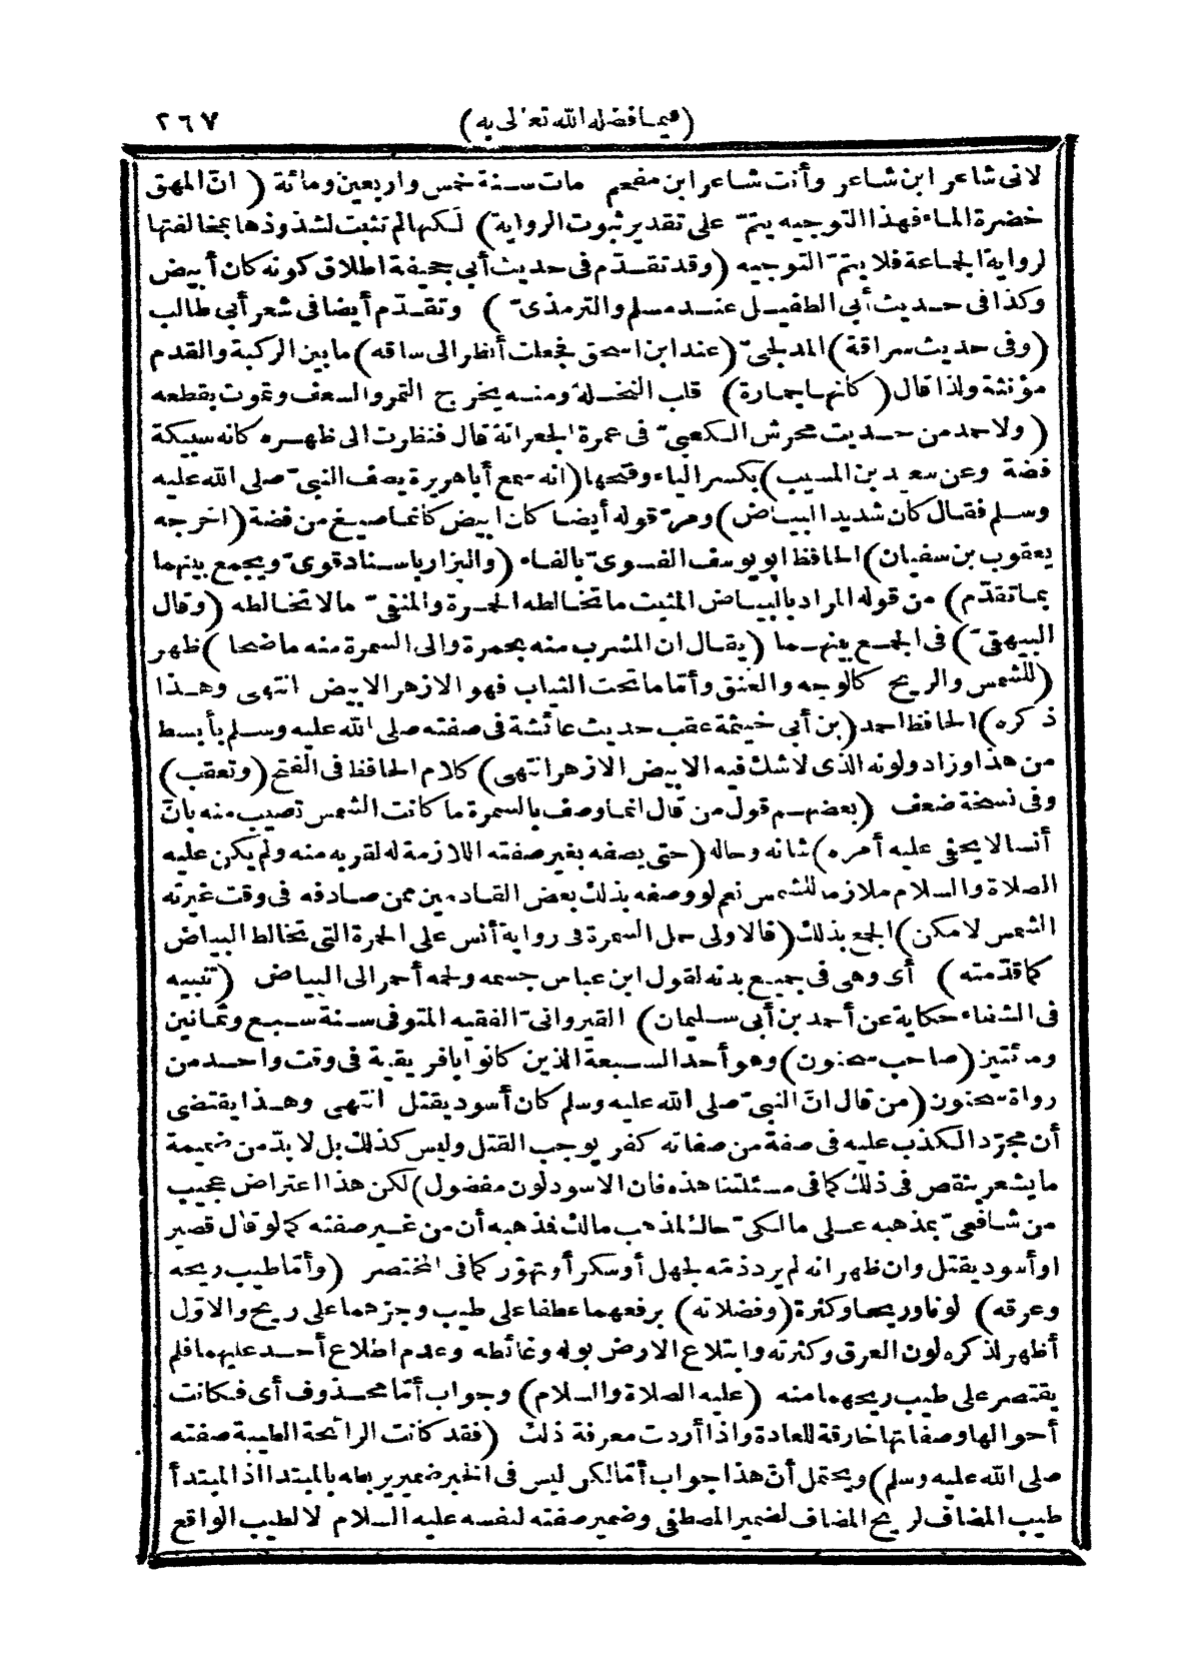 (فيما فضله الله تعالى به) ٢٦٧
لانى شاعر ابن شاعر وأنت شاعر ابن مفحم مات سنة خمس واربعين ومائة ( انّ المهق
خضرة الماء فهذا التوجيه يتمّ على تقدير ثبوت الرواية) لكنها لم تثبت لشذوذها بمخالفتها
لرواية الجماعة فلا يتمّ التوجيه (وقد تقدّم فى حديث أبى جحيفة اطلاق كونه كان أبيض
وكذا فى حديث أبى الطفيل عند مسلم والترمذىّ) وتقدّم أيضا فى شعر أبى طالب
(وفى حديث سراقة) المدلجىّ (عند ابن اسحق فجعلت أنظر الى ساقه) ما بين الركبة والقدم
مؤنثة ولذا قال (كأنها جمارة) قلب النخلة ومنه يخرج التمر والسعف وتموت بقطعه
(ولاحمد من حديث محرش الكعبىّ فى عمرة الجعرانة قال فنظرت الى ظهره كانه سبيكة
فضة وعن سعيد بن المسيب) بكسر الياء وفتحها (انه سمع أبا هريرة يصف النبىّ صلى الله عليه
وسلم فقال كان شديد البياض) ومرّ قوله أيضا كان ابيض كأنما صيغ من فضة (اخرجه
يعقوب بن سفيان) الحافظ ابو يوسف الفسوىّ بالفاء (والبزار باسناد قوىّ ويجمع بينهما
بما تقدّم) من قوله المراد بالبياض المثبت ما تخالطه الحمرة والمنفىّ ما لا تخالطه (وقال
البيهقىّ) فى الجمع بينهما (يقال ان المشرب منه بحمرة والى السمرة منه ما ضحا) ظهر
(للشمس والريح كالوجه والعنق وأمّا ما تحت الثياب فهو الازهر الابيض انتهى وهذا
ذكره) الحافظ احمد (بن أبى خيثمة عقب حديث عائشة فى صفته صلى الله عليه وسلم بأبسط
من هذا وزاد ولونه الذى لا شك فيه الابيض الازهر انتهى) كلام الحافظ فى الفتح (وتعقب)
وفى نسخة ضعف (بعضهم قول من قال انما وصف بالسمرة ما كانت الشمس تصيب منه بانّ
أنسا لا يخفى عليه أمره) شانه وحاله (حتى يصفه بغير صفته اللازمة له لقربه منه ولم يكن عليه
الصلاة والسلام ملازما للشمس نعم لو وصفه بذلك بعض القادمين ممن صادفه فى وقت غيرته
الشمس لامكن) الجمع بذلك (فالاولى حمل السمرة فى رواية أنس على الحمرة التى تخالط البياض
كما قدّمته) أى وهى فى جميع بدنه لقول ابن عباس جسمه ولحمه أحمر الى البياض (تنبيه
فى الشفاء حكاية عن أحمد بن أبى سليمان) القيروانىّ الفقيه المتوفى سنة سبع وثمانين
ومئتين (صاحب سحنون) وهو أحد السبعة الذين كانوا بافريقية فى وقت واحد من
رواة سحنون (من قال انّ النبىّ صلى الله عليه وسلم كان أسود يقتل انتهى وهذا يقتضى
أن مجرّد الكذب عليه فى صفة من صفاته كفر يوجب القتل وليس كذلك بل لا بدّ من ضميمة
ما يشعر بنقص فى ذلك كما فى مسئلتنا هذه فان الاسود لون مفضول) لكن هذا اعتراض عجيب
من شافعىّ بمذهبه على مالكىّ حاك لمذهب مالك فمذهبه أن من غير صفته كما لو قال قصير
او أسود يقتل وان ظهر انه لم يرد ذمّه لجهل أو سكر أو تهوّر كما فى المختصر (وأمّا طيب ريحه
وعرقه) لونا وريحا وكثرة (وفضلاته) برفعهما عطفا على طيب وجرّهما على ريح والاوّل
أظهر لذكره لون العرق وكثرته وابتلاع الارض بوله وغائطه وعدم اطلاع أحد عليهما فلم
يقتصر على طيب ريحهما منه (عليه الصلاة والسلام) وجواب أمّا محذوف أى فكانت
أحوالها وصفاتها خارقة للعادة واذا أردت معرفة ذلك (فقد كانت الرائحة الطيبة صفته
صلى الله عليه وسلم) ويحتمل أنّ هذا جواب أمّا لكن ليس فى الخبر ضمير يربطه بالمبتدا اذ المبتدأ
طيب المضاف لريح المضاف لضمير المصطفى وضمير صفته لنفسه عليه السلام لا لطيب الواقع